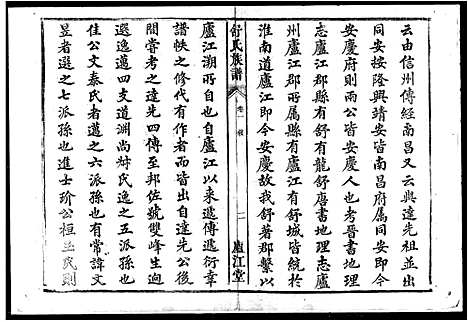 云由信州傳經南昌又云與達先祖並出
同安按隆興靖安皆南昌府屬同安即今
安慶府則兩公皆安慶人也考晉書地理
志廬江郡縣有舒有龍舒唐書地理志廬
州廬江郡所屬縣有廬江有舒城皆統於
淮南道廬江即今安慶故我舒著郡繫以
舒氏族譜
卷一
二
廬江堂
廬江溯所自也自廬江以來遞傳遞衍章
譜帙之修代有作者而皆出自達先公後
間嘗考之達先四傳至邦佐號雙峰生逈
選逸遵四支道淵尚尉氏逸之五派孫也
佳公文泰氏者遵之六派孫也有常諱文
昱者選之七派孫也進士玠公桓玉氏則